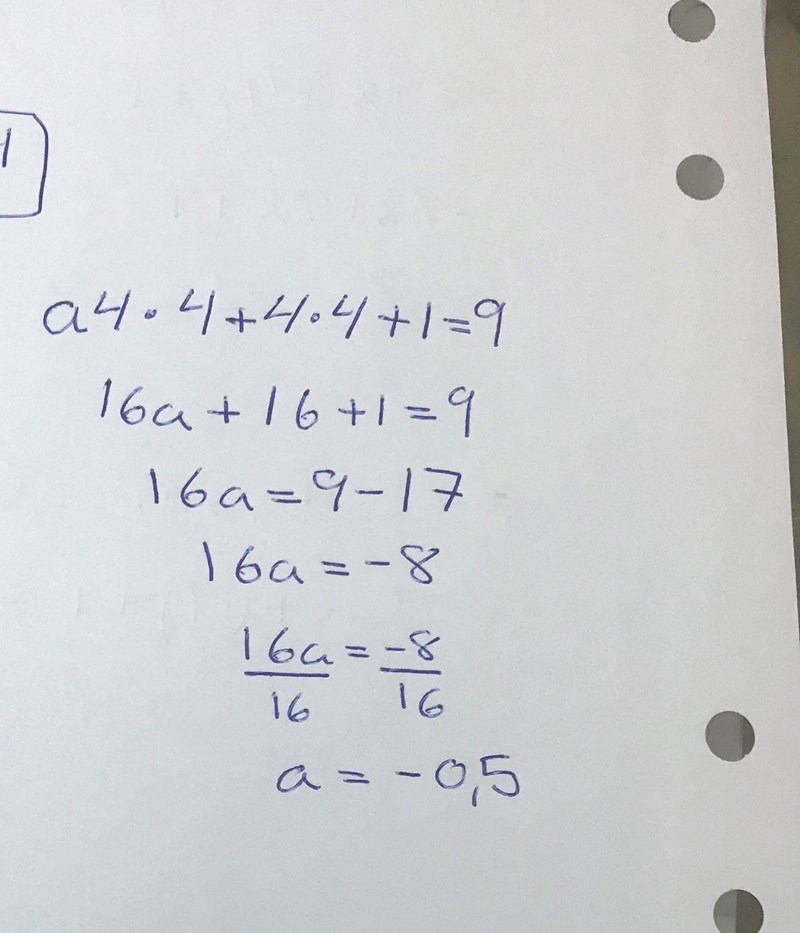 1
a4·4+4·4+1=9
16a+16+1=9
16a=9-17
16a=-8
16a/16=-8/16
a=-0,5